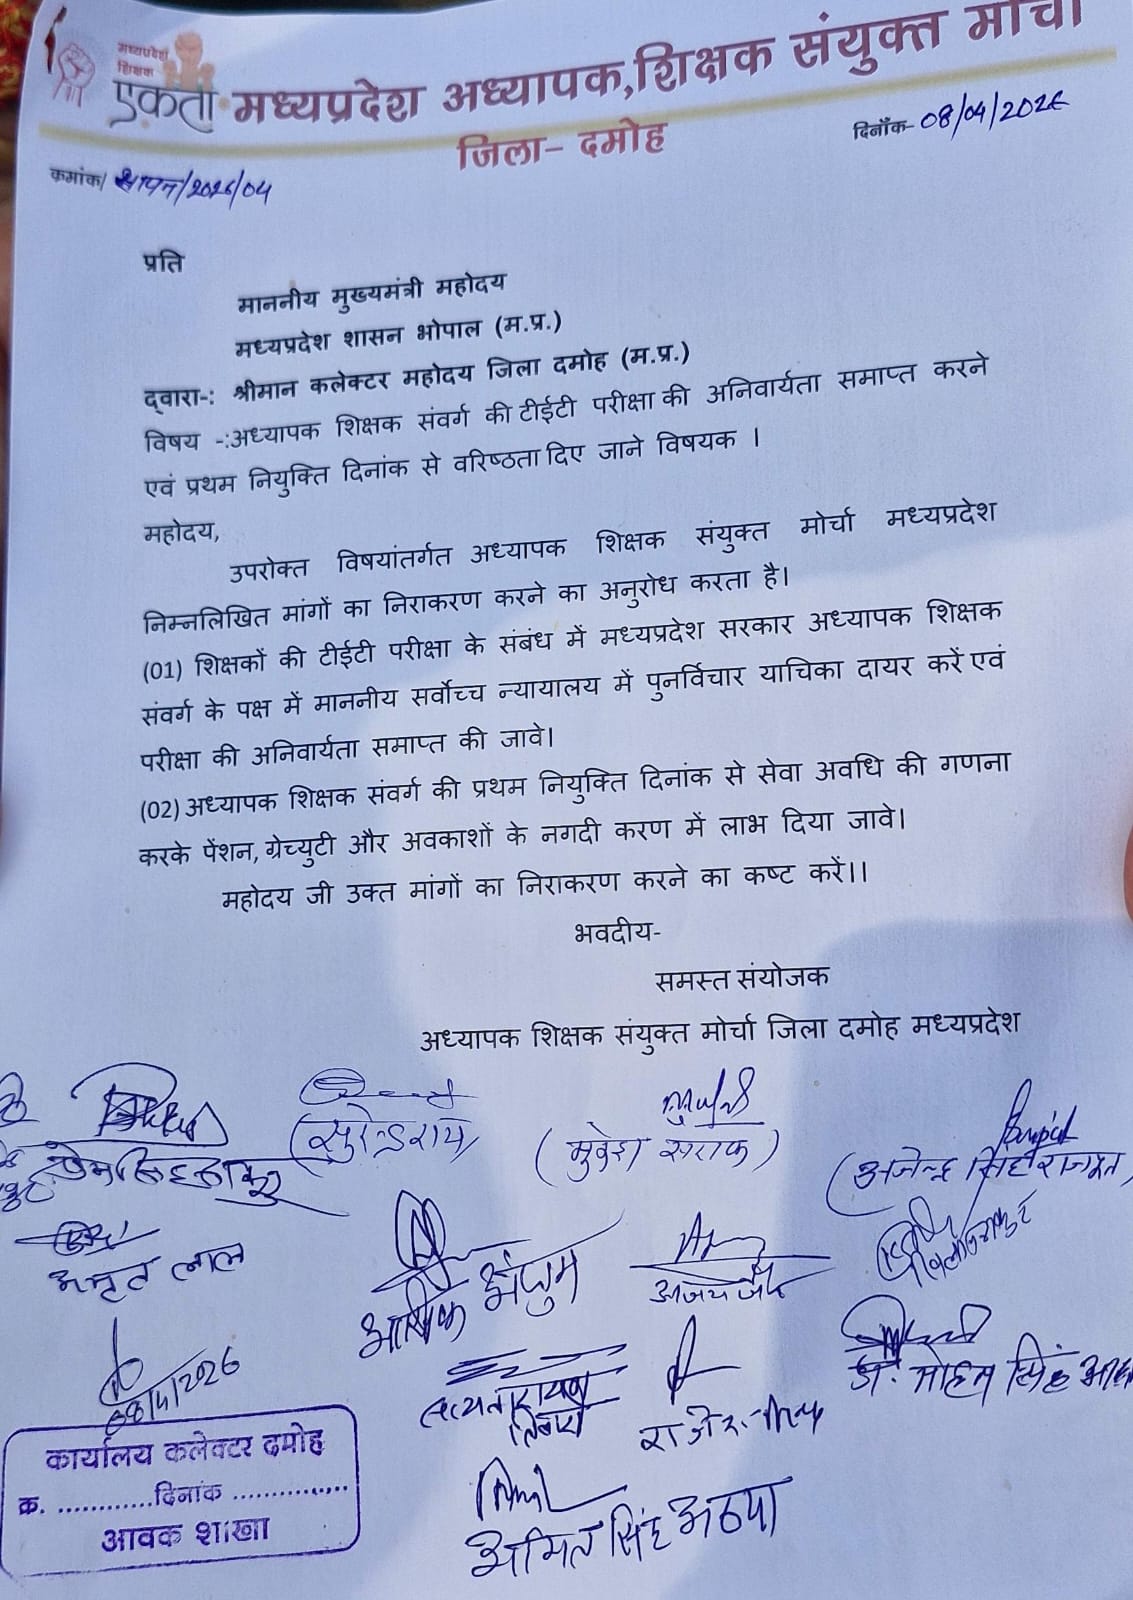 मध्यप्रदेश
शिक्षक
एकता मध्यप्रदेश अध्यापक,शिक्षक संयुक्त मोर्चा
जिला- दमोह
दिनाँक- 08/04/2026
कमांक/ ज्ञापन/2026/04
प्रति
माननीय मुख्यमंत्री महोदय
मध्यप्रदेश शासन भोपाल (म.प्र.)
द्वारा-: श्रीमान कलेक्टर महोदय जिला दमोह (म.प्र.)
विषय -:अध्यापक शिक्षक संवर्ग की टीईटी परीक्षा की अनिवार्यता समाप्त करने
एवं प्रथम नियुक्ति दिनांक से वरिष्ठता दिए जाने विषयक ।
महोदय,
उपरोक्त विषयांतर्गत अध्यापक शिक्षक संयुक्त मोर्चा मध्यप्रदेश
निम्नलिखित मांगों का निराकरण करने का अनुरोध करता है।
(01) शिक्षकों की टीईटी परीक्षा के संबंध में मध्यप्रदेश सरकार अध्यापक शिक्षक
संवर्ग के पक्ष में माननीय सर्वोच्च न्यायालय में पुनर्विचार याचिका दायर करें एवं
परीक्षा की अनिवार्यता समाप्त की जावे।
(02) अध्यापक शिक्षक संवर्ग की प्रथम नियुक्ति दिनांक से सेवा अवधि की गणना
करके पेंशन, ग्रेच्युटी और अवकाशों के नगदी करण में लाभ दिया जावे।
महोदय जी उक्त मांगों का निराकरण करने का कष्ट करें।।
भवदीय-
समस्त संयोजक
अध्यापक शिक्षक संयुक्त मोर्चा जिला दमोह मध्यप्रदेश
(सुरेन्द्र राय)
अमृत लाल
आशिक अंजुम
अजय जैन
सत्यनारायण
डॉ. मोहन सिंह
08/4/2026
अमित सिंह अठया
कार्यालय कलेक्टर दमोह
क्र. ............दिनांक ..............
आवक शाखा